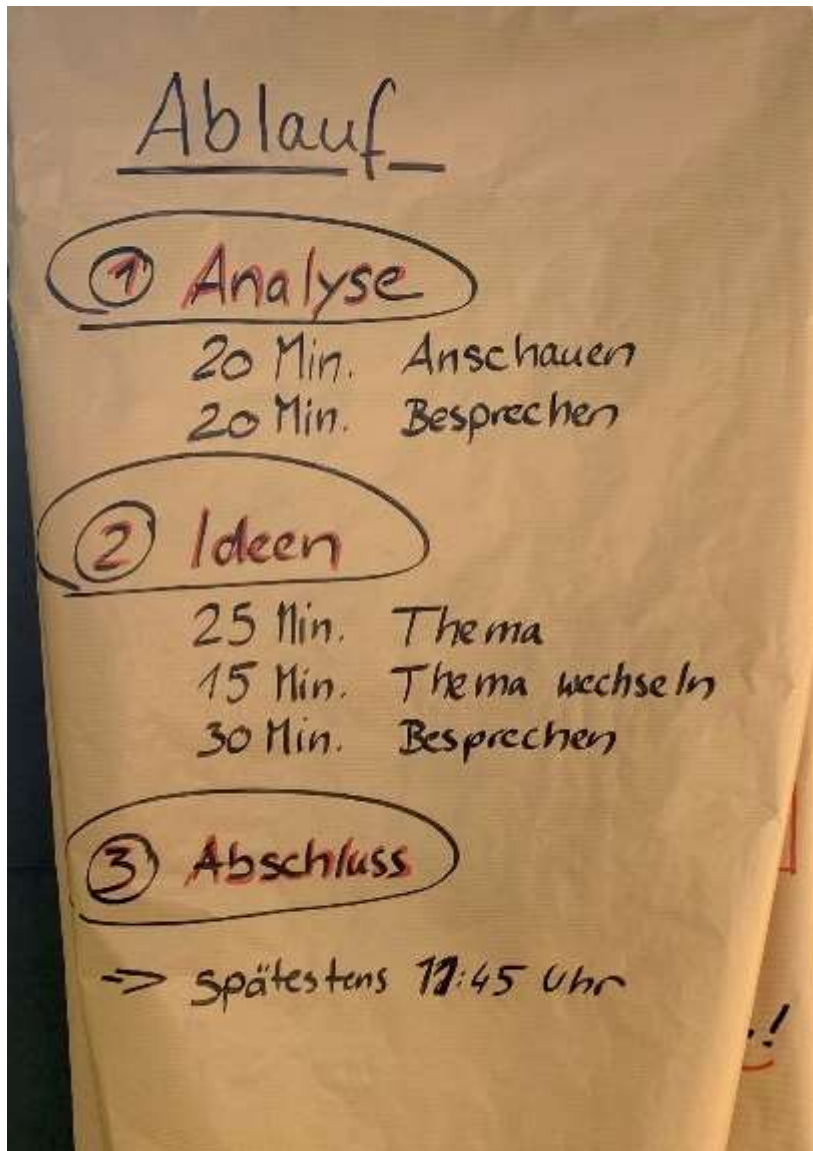 Ablauf
① Analyse
20 Min. Anschauen
20 Min. Besprechen
② Ideen
25 Min. Thema
15 Min. Thema wechseln
30 Min. Besprechen
③ Abschluss
=> spätestens :45 Uhr
!